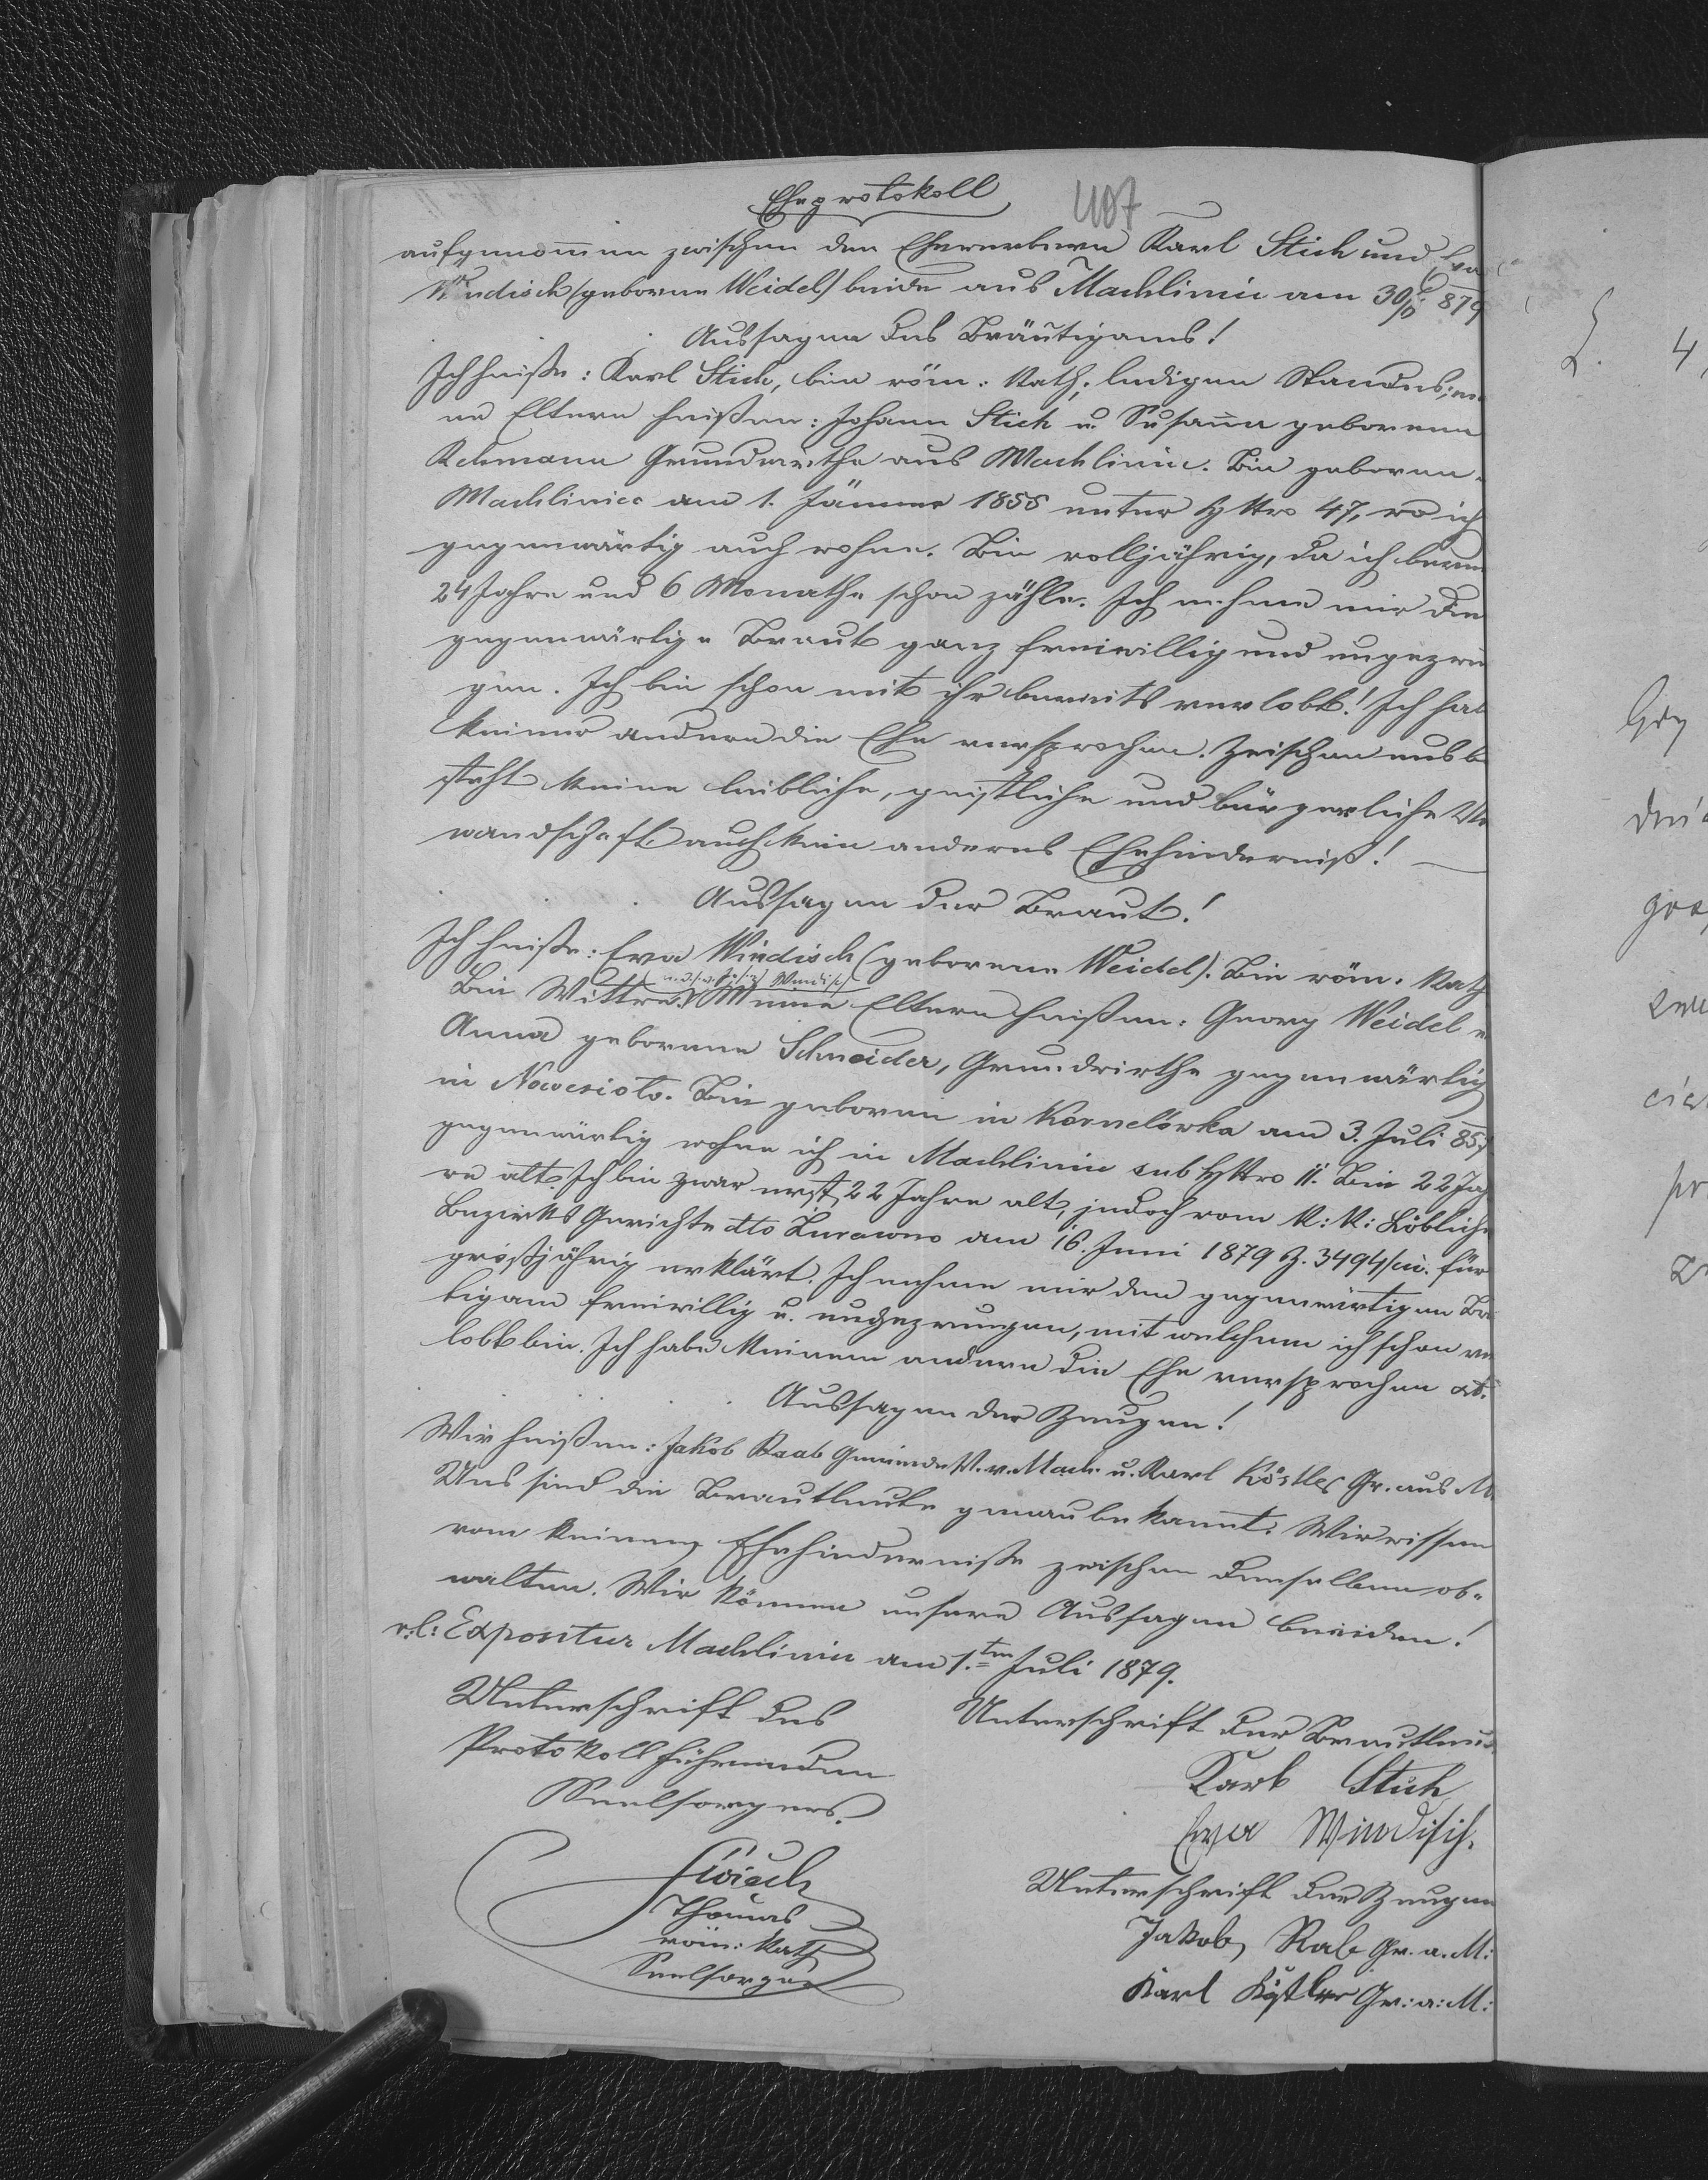 Eheprotokoll
407
aufgenommen zwischen den Ehewerbern Karl Stich und Eva
Windisch (geborene Weidel) beide aus Machliniec am 30/6 879
Aussagen des Bräutigams!
Ich heiße: Karl Stich, bin röm: Kath, ledigen Standes; mei
ne Eltern heißen: Johann Stich u. Susanna geborene
Rehmann Grundwirthe aus Machliniec. Bin geboren
Machliniec am 1. Jänner 1855 unter HNro 47, wo ich
gegenwärtig auch wohne. Bin volljährig, da ich bereits
24 Jahre und 6 Monathe schon zähle. Ich nehme mir die
gegenwärtige Braut ganz freiwillig und ungezwun
gen. Ich bin schon mit ihr bereits verlobt! Ich hab
keiner andern die Ehe versprochen. Zwischen uns be
steht keine leibliche, geistliche und bürgerliche Ver
wandschaft auch kein anderes Ehehinderniß! —
Aussagen der Braut!
Ich heiße: Eva Windisch (geborene Weidel). Bin röm. Kath
Windisch
Bin Wittwe. Meine Eltern heißen: Georg Weidel u
Anna geborene Schneider, Grundwirthe gegenwärtig
in Nowesioło. Bin geboren in Kornelowka am 3. Juli 857
gegenwärtig wohne ich in Machliniec sub HNro 11. Bin 22 Jah
re alt. Ich bin zwar erst 22 Jahre alt, jedoch vom K: K: Löbliche
Bezirks Gerichte dto Żurawno am 16. Juni 1879 Z. 3494/civ. für
großjährig erklärt. Ich nehme mir den gegenwärtigen Bräu
tigam freiwillig u. ungezwungen, mit welchem ich schon ver
lobt bin. Ich habe keinem andern die Ehe versprochen etc.
Aussagen der Zeugen!
Wir heißen: Jakob Raab Gemeinde V. v. Mach. u. Karl Köstler Gr. aus M.
Uns sind die Brautleute genau bekannt. Wir wissen
von keinem Ehehinderniße zwischen denselben ob-
walten. Wir können unsere Aussagen beeiden!
r: l: Expositur Machliniec am 1.ten Juli 1879.
Unterschrift des
Protokollführenden
Seelsorgers.
Thomas
röm: Kath
Seelsorger
Unterschrift der Brautleute
Karl Stich
Ewa Windisch.
Unterschrift der Zeugen
Jakob Rab Gr. a. M:
KarlKöstler Gr: a: M:
L. 4,